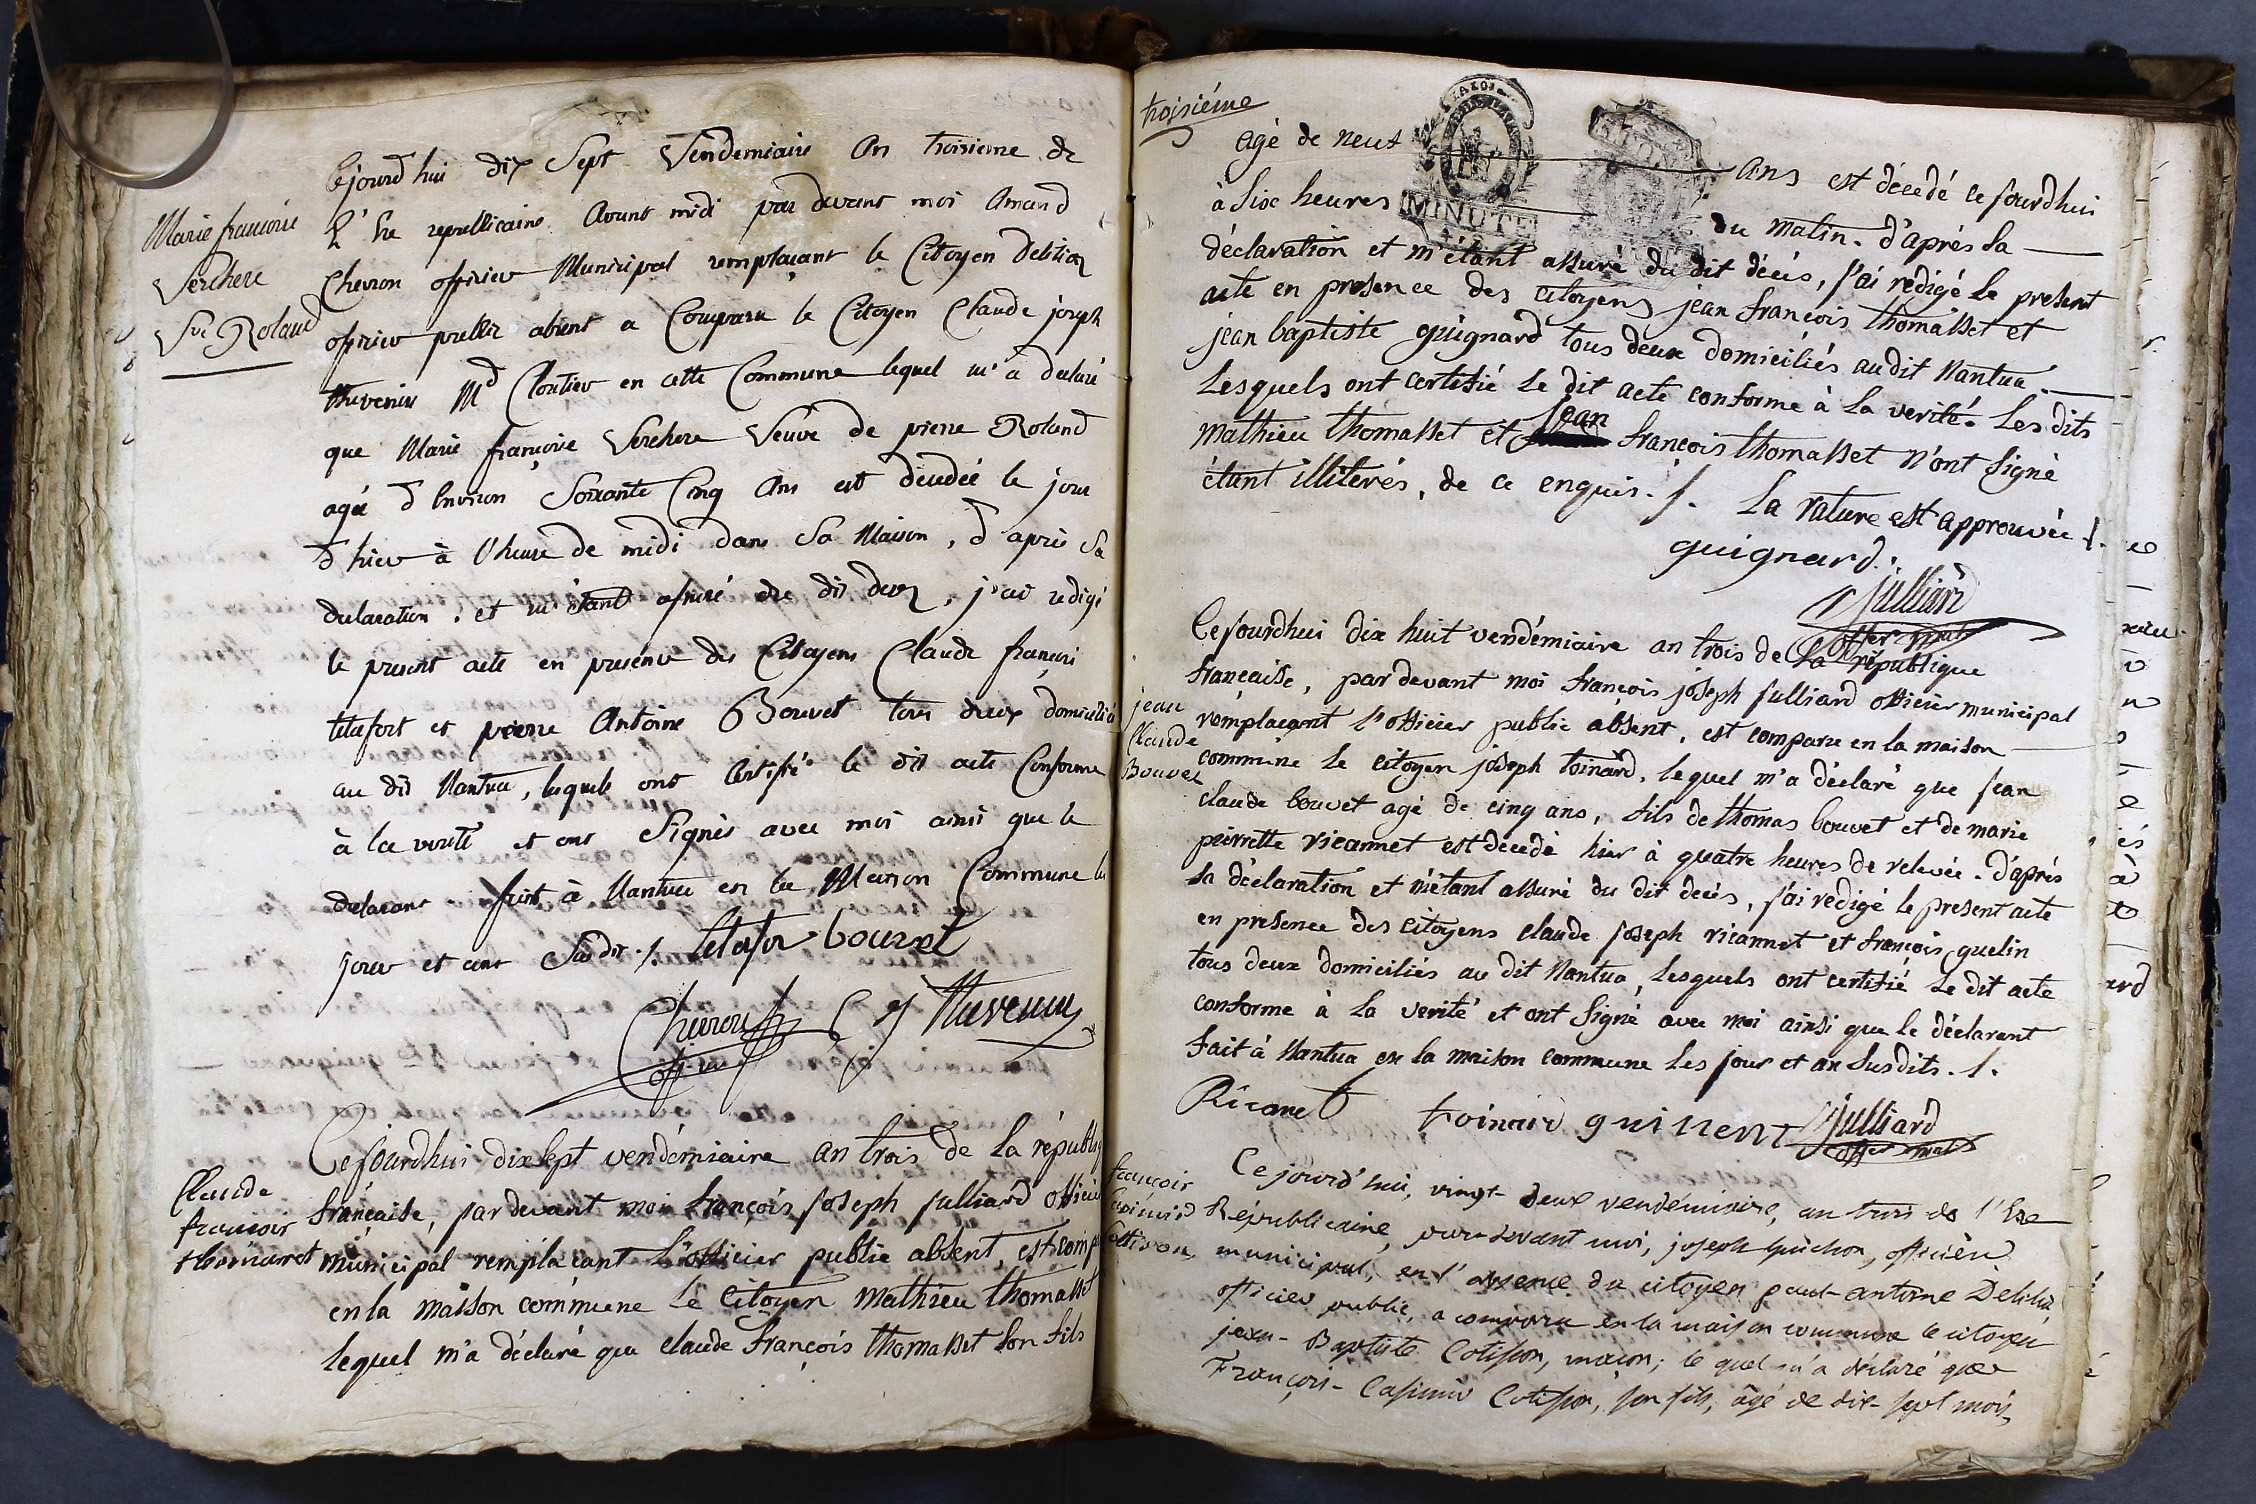 Marie francoise
Verchere
Ve Roland
Cejourd'hui dix Sept Vendemiaire An troisieme de
L'Ere republicaine Avant midi par devant moi Amand
Chevron officier Municipal remplaçant le Citoyen Delilia
officier public absent a Comparu le Citoyen Claude joseph
thevenin Md Cloutier en cette Commune lequel m'a declaré
que Marie françoise Verchere Veuve de pierre Roland
agée d'Environ Soixante Cinq Ans est decedée le jour
d'hier à l'heure de midi dans Sa Maison, d'apris Sa
declaration, et m'étant assuré du dit deces, j'ai redigé
le present acte en presence des Citoyens Claude françois
letafort et pierre Antoine Bouvet tous deux domiciliés
au dit Nantua, lesquels ont Certifié le dit acte Conforme
à la verité et ont Signés avec moi ainsi que le
declarant fait à Nantua en la Maison Commune les
jour et an Susdit ./. letafor bouvet
Chevron C j thevenin
off. m
Claude
francois
thomasset
Cejourdhui dixsept vendémiaire an trois de la républiq
française, par devant moi françois joseph julliard officier
municipal remplacant l'officier public absent, est comp
en la maison commune le citoyen mathieu thomasset
lequel m'a déclaré que claude françois thomasset son fils
troisiéme
agé de neuf ans est décedé ce jourdhui
à six heures du matin. d'aprés sa
MINUTE
déclaration et m'étant assuré du dit décés, j'ai rédigé le present
acte en presence des citoyens jean françois thomasset et
jean baptiste guignard tous deux domiciliés audit nantua.
lesquels ont certifié le dit acte conforme à la verité. les dits
jean
mathieu thomasset et françois thomasset n'ont signé
étant illiterés, de ce enquis. /. la rature est approuvée /.
guignard.
julliard
offer mpal
jean
Claude
Bouvet
Cejourdhui dix huit vendémiaire an trois de la république
française, par devant moi françois joseph julliard officier municipal
remplaçant l'officier public absent, est comparu en la maison
commune le citoyen joseph toinard, lequel m'a déclaré que jean
claude bouvet agé de cinq ans, fils de thomas bouvet et de marie
peirrette ricannet est decedé hier à quatre heures de relevée. d'aprés
sa déclaration et m'étant assuré du dit decés, j'ai redigé le present acte
en presence des citoyens claude joseph ricannet et françois quelin
tous deux domiciliés au dit nantua, lesquels ont certifié le dit acte
conforme à la verité et ont signé avec moi ainsi que le déclarant
fait à nantua en la maison commune les jour et an susdits. /.
Ricanet toinard julliard
offer mal
francois
Casimir
Cotisson
Ce jourd'hui, vingt-deux vendémiaire, an trois de l'Ere
Républicaine, par-devant moi, joseph Guichon, officier
municipal, en l'absence du citoyen paul-antoine Delilia
officier public, a comparu en la maison commune le citoyen
jean-Baptiste Cotisson, maçon; le quel m'a déclaré que
François-Casimir Cotisson, son fils, âgé de dix-sept mois,